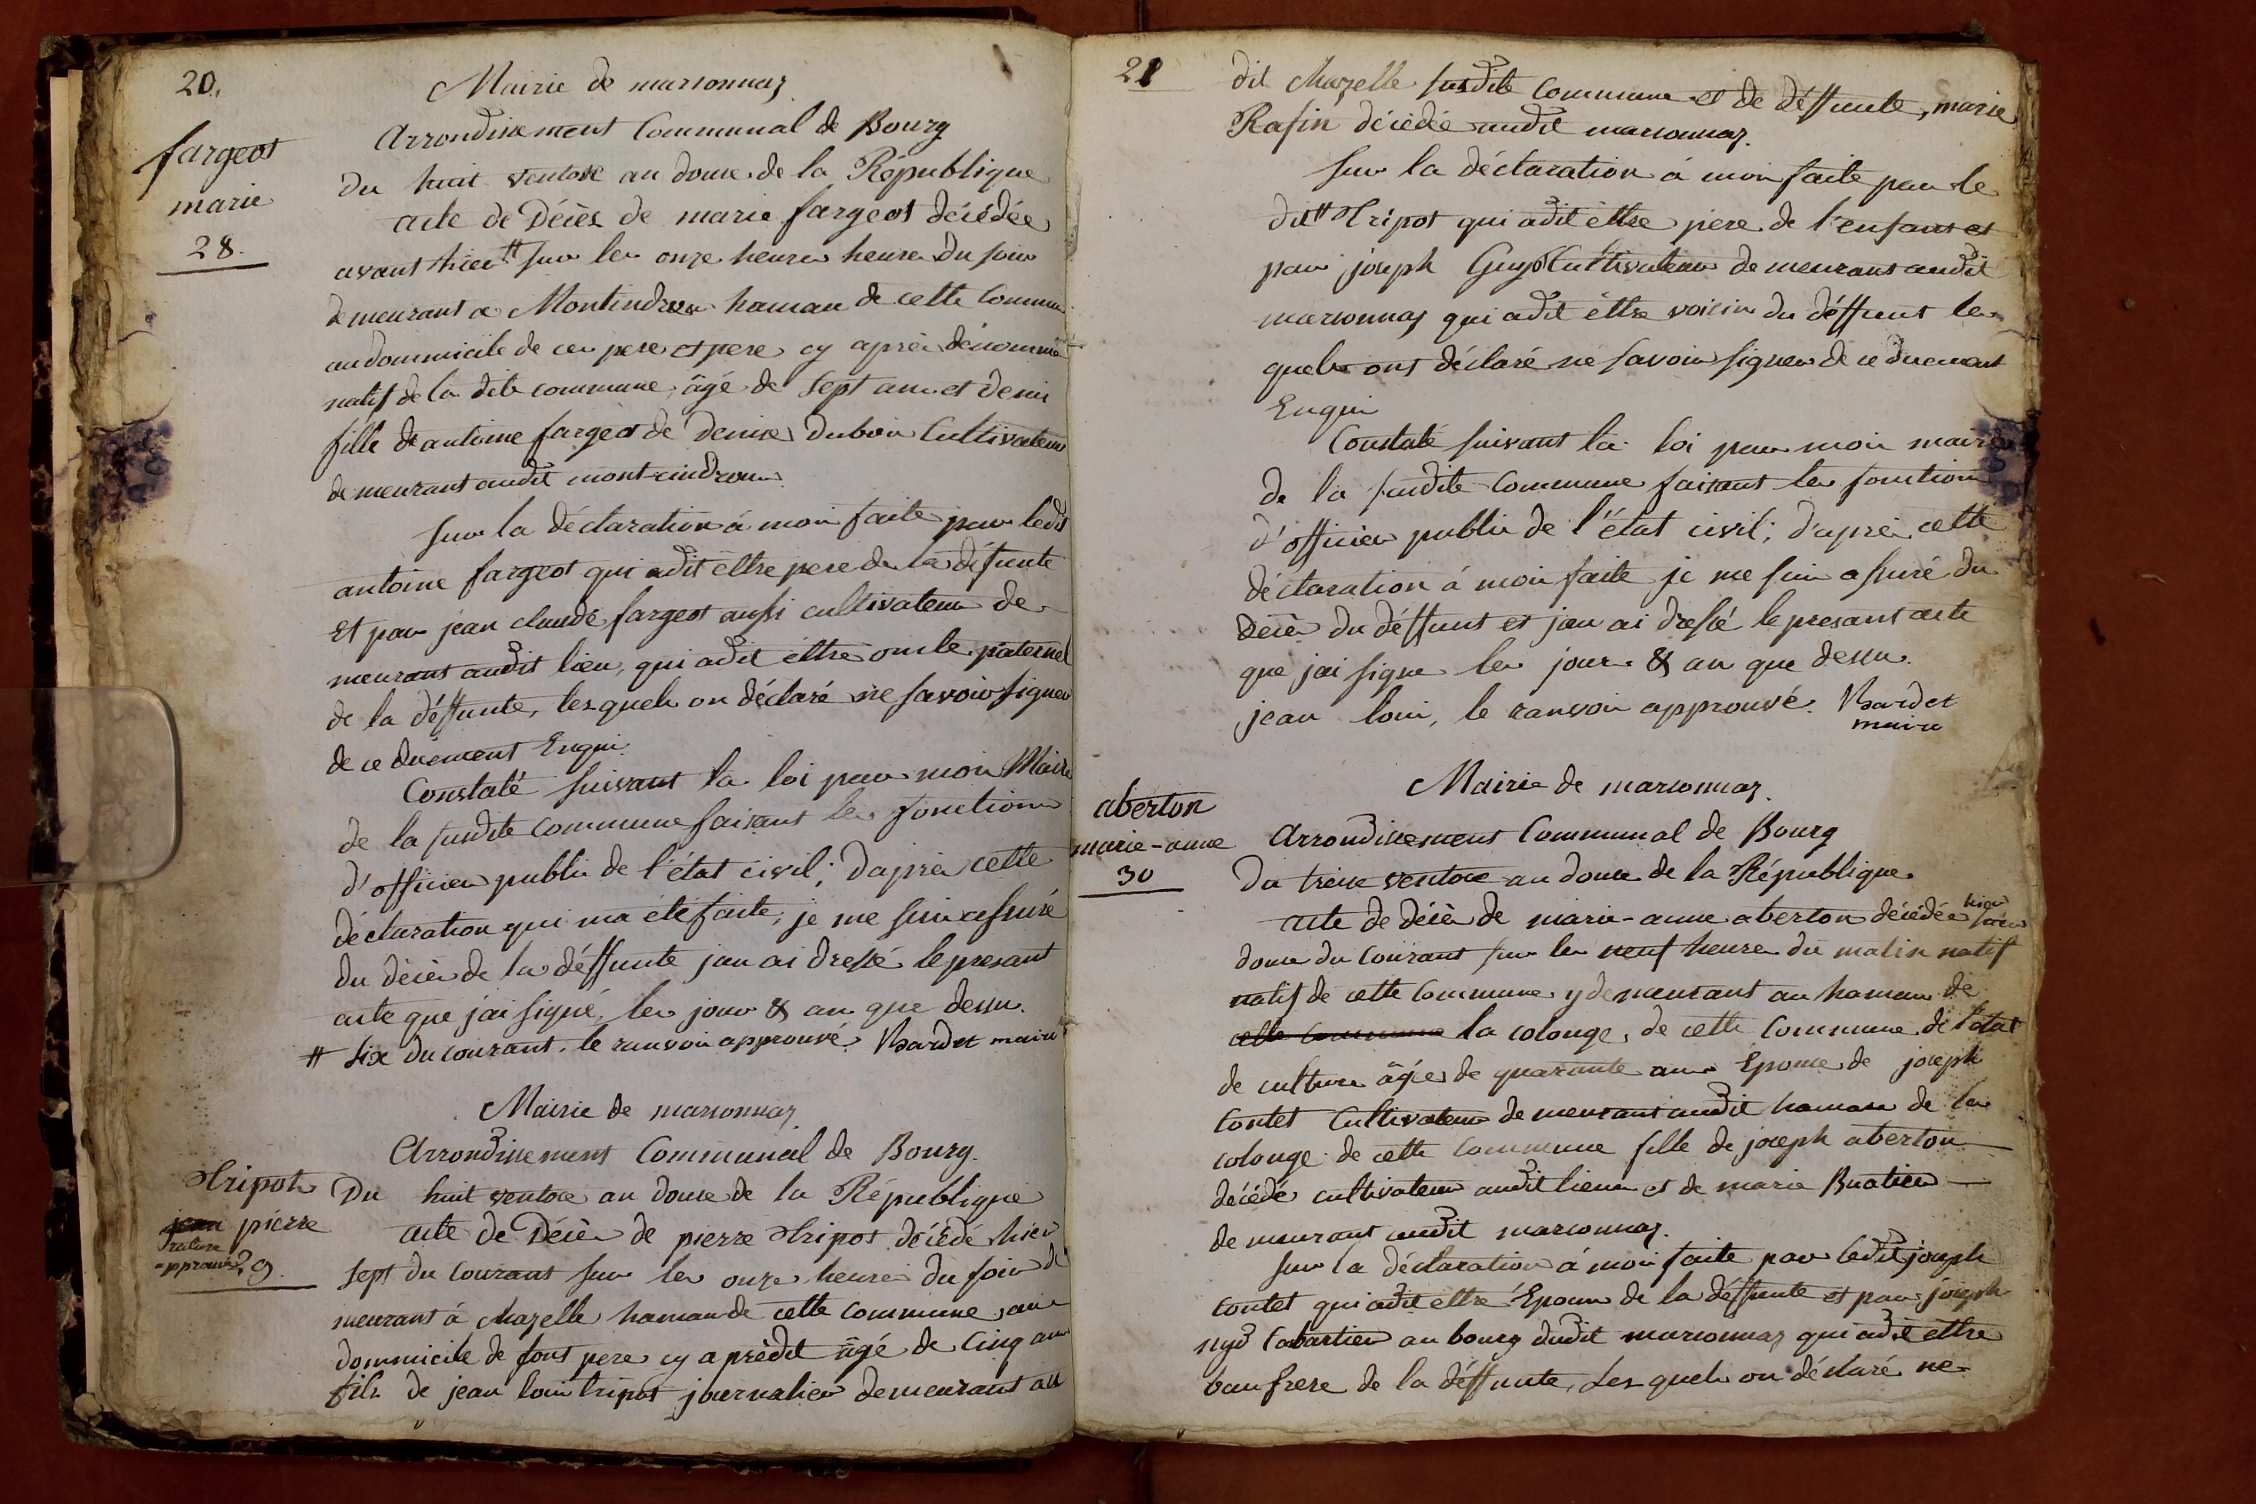 20.
Mairie de marsonnas
Arrondissement Communal de Bourg
fargeot
marie
28.
Du huit ventose an douze de la République
acte de Décès de marie fargeot décédée
avant hier # sur les onze heures heures du soir
demeurant a Montindroux hamau de cette Commune
au dommicile de ces pere et pere cy après dénommé
natif de la dite commune, âgé de sept ans et demi
fille de antoine fargeot de Denise Dubois Cultivateurs
demeurant audit mont-cindroux.
Sur la déclaration à moi faite par ledit
antoine fargeot qui a dit être pere de la défunte
Et par jean claude fargeot aussi cultivateur de-
meurant audit lieu, qui a dit être oncle paternel
de la déffunte, lesquels on déclaré ne savoir signer
de ce duement Enqui.
Constaté suivant la loi par moi Maire
de la susdite Commune faisant les fonctions
d'officier public de l'état civil; d'après cette
déclaration qui ma été faite, je me suis assuré
du décès de la déffunte jan ai dressé le presant
acte que jai signé, les jour & an que dessus.
# Six du courant. le ranvoi approuvé. Bardet maire
Mairie de marsonnas
Arrondissement Communal de Bourg.
Tripot
jean pierre
rature
approuvé 29.
Du huit ventose an douze de la République
acte de Décès de pierre Tripot décédé hier
sept du courant sur les onze heures du soir de
meurant à Mazelle hamau de cette commune, au
dommicile de sons pere cy a prèdit âgé de Cinq ans
fils de jean louis tripot journalier demeurant au
21
dit Mazelle susdite Commune et de déffunte, marie
Rafin décédée audit marsonnas.
Sur la déclaration à moi faite par le
dit # Tripot qui a dit être pere de l'enfant et
par joseph Guyot Cultivateur demeurant audit
marsonnas qui a dit être voisin du déffunt les-
quels ont déclaré ne savoir signer de ce duement
Enqui
Constaté suivant la loi par moi maire
de la susdite commune faisant les fonctions
d'officier public de l'état civil; d'après cette
déclaration à moi faite je me suis assuré du
décès du déffunt et jan ai dressé le presant acte
que jai signe les jour & an que dessus.
jean loui, le ranvoi approuvé. Bardet
maire
Mairie de marsonnas.
aberton
marie-anne
30
Arrondissement Communal de Bourg
Du treize ventose an douze de la République.
acte de décès de marie-anne aberton décédée hier
douze du courant sur les neuf heures du matin natif
natif de cette Commune y demeurant au hamau de
cette commune la colonge, de cette Commune de l'état
de culture âgée de quarante ans Epouse de joseph
contet Cultivateur demeurant audit hamau de la
colonge de cette commune fille de joseph aberton
décédé cultivateur audit lieu et de marie Buatier
demeurant audit marsonnas.
Sur la déclaration à moi faite par ledit joseph
contet qui a dit être Epoux de la déffunte et par joseph
nyd Cabartier au bourg dudit marsonnas qui a dit être
baufrere de la déffunte, Lesquels on déclaré ne